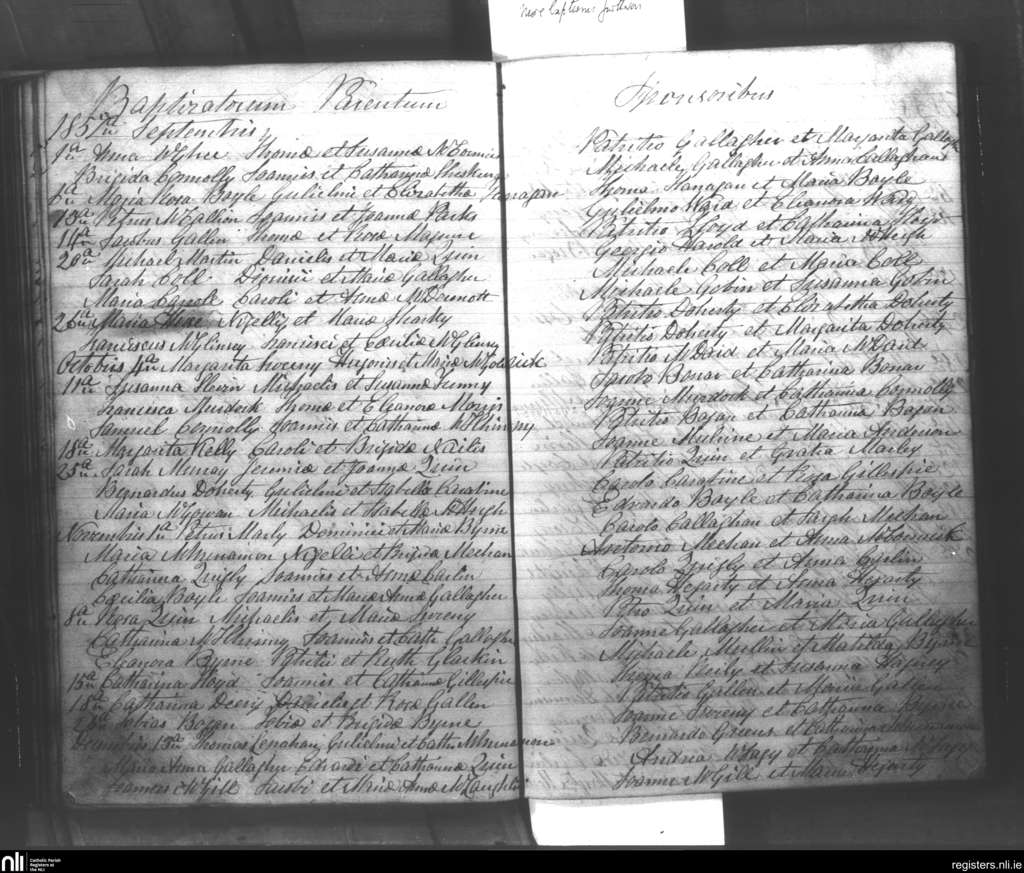 Baptizatorum Parentum
1857 Septembris
1a Anna McGhee Thomæ et Susannæ McCormic
Brigida Connolly Joannis et Catharinæ
6a Maria Rosa Boyle Gulielmi et Elizabetha Flanagan
13a Petrus McCallion Joannis et Joannæ Parks
14a Jacobus Gallen Thomæ et Rosæ Maguire
20a Michael Martin Danielis et Mariæ Quin
Sarah Coll Dionisii et Mariæ Gallagher
Maria Carroll Caroli et Annæ McDermott
26a Maria Nigelli et Mariæ Sharky
Franciscus McGlinsey Francisci et Cæciliæ McGlinsey
Octobris 4a Margarita Sweeny Hugonis et Mariæ McGoldrick
11a Susanna Hern Michaelis et Susannæ Lunny
Francisca Murdock Thomæ et Eleanoræ Morris
Samuel Connolly Joannis et Catharinæ
18a Margarita Kelly Caroli et Brigidæ Nailis
25a Sarah Murray Jeremiæ et Joannæ Quin
Bernardus Doherty Gulielmi et Isabella Carabine
Maria McGowan Michaelis et Isabella McHugh
Novembris 1a Petrus Marly Dominici et Mariæ Byrne
Maria McMenamon Nigelli et Brigida Meehan
Catharina Quigly Joannis et Annæ Carlin
Cæcilia Boyle Joannis et Mariæ Annæ Gallagher
8a Rosa Quin Michaelis et Mariæ Sweeny
Catharina Joannis et Cath Gallagher
Eleanora Byrne Patritii et Ruth Glackin
15a Catharina Floyd Joannis et Catharinæ Gillespie
18a Catharina Deery Danielis et Rosæ Gallen
Tobias Bogan Tobiæ et Brigidæ Byrne
Decembris 13a Thomas Lenahan Gulielmi et Cath McMenamon
Maria Anna Gallagher Edvardi et Catharinæ Quin
Joannes McGill Jacobi et Mariæ Annæ McLaughlin
Sponsoribus
Patritio Gallagher et Margarita Gallagher
Michaele Gallagher et Anna Callaghan
Thoma Flanagan et Maria Boyle
Gulielmo Ward et Eleanora Ward
Patritio Floyd et Catharina Floyd
Georgio Harold et Maria McHugh
Michaele Coll et Maria Coll
Michaele Govin et Susanna Govin
Patritio Doherty et Elizabetha Doherty
Patritio Doherty et Margarita Doherty
Patritio McDavid et Maria McDavid
Jacobo Bonar et Catharina Bonar
Joanne Murdock et Catharina Connolly
Patritio Bogan et Catharina Bogan
Joanne Mulrine et Maria Anderson
Patritio Quin et Gratia Marley
Carolo Carabine et Rosa Gillespie
Edvardo Boyle et Catharina Boyle
Carolo Callaghan et Sarah Meehan
Antonio Meehan et Anna McCormick
Carolo Quigly et Anna Carlin
Thoma Hegarty et Anna Hegarty
Petro Quin et Maria Quin
Joanne Gallagher et Maria Gallagher
Michaele Mullin et Matilda Byrne
Thoma Reily et Susanna
Patritio Gallen et Maria Gallen
Joanne Sweeny et Catharina Byrne
Bernardo Greens et Catharina McMenamon
Andrea et Catharina
Joanne McGill et Maria Hegarty
nli Catholic Parish
Registers at
the NLI
registers.nli.ie